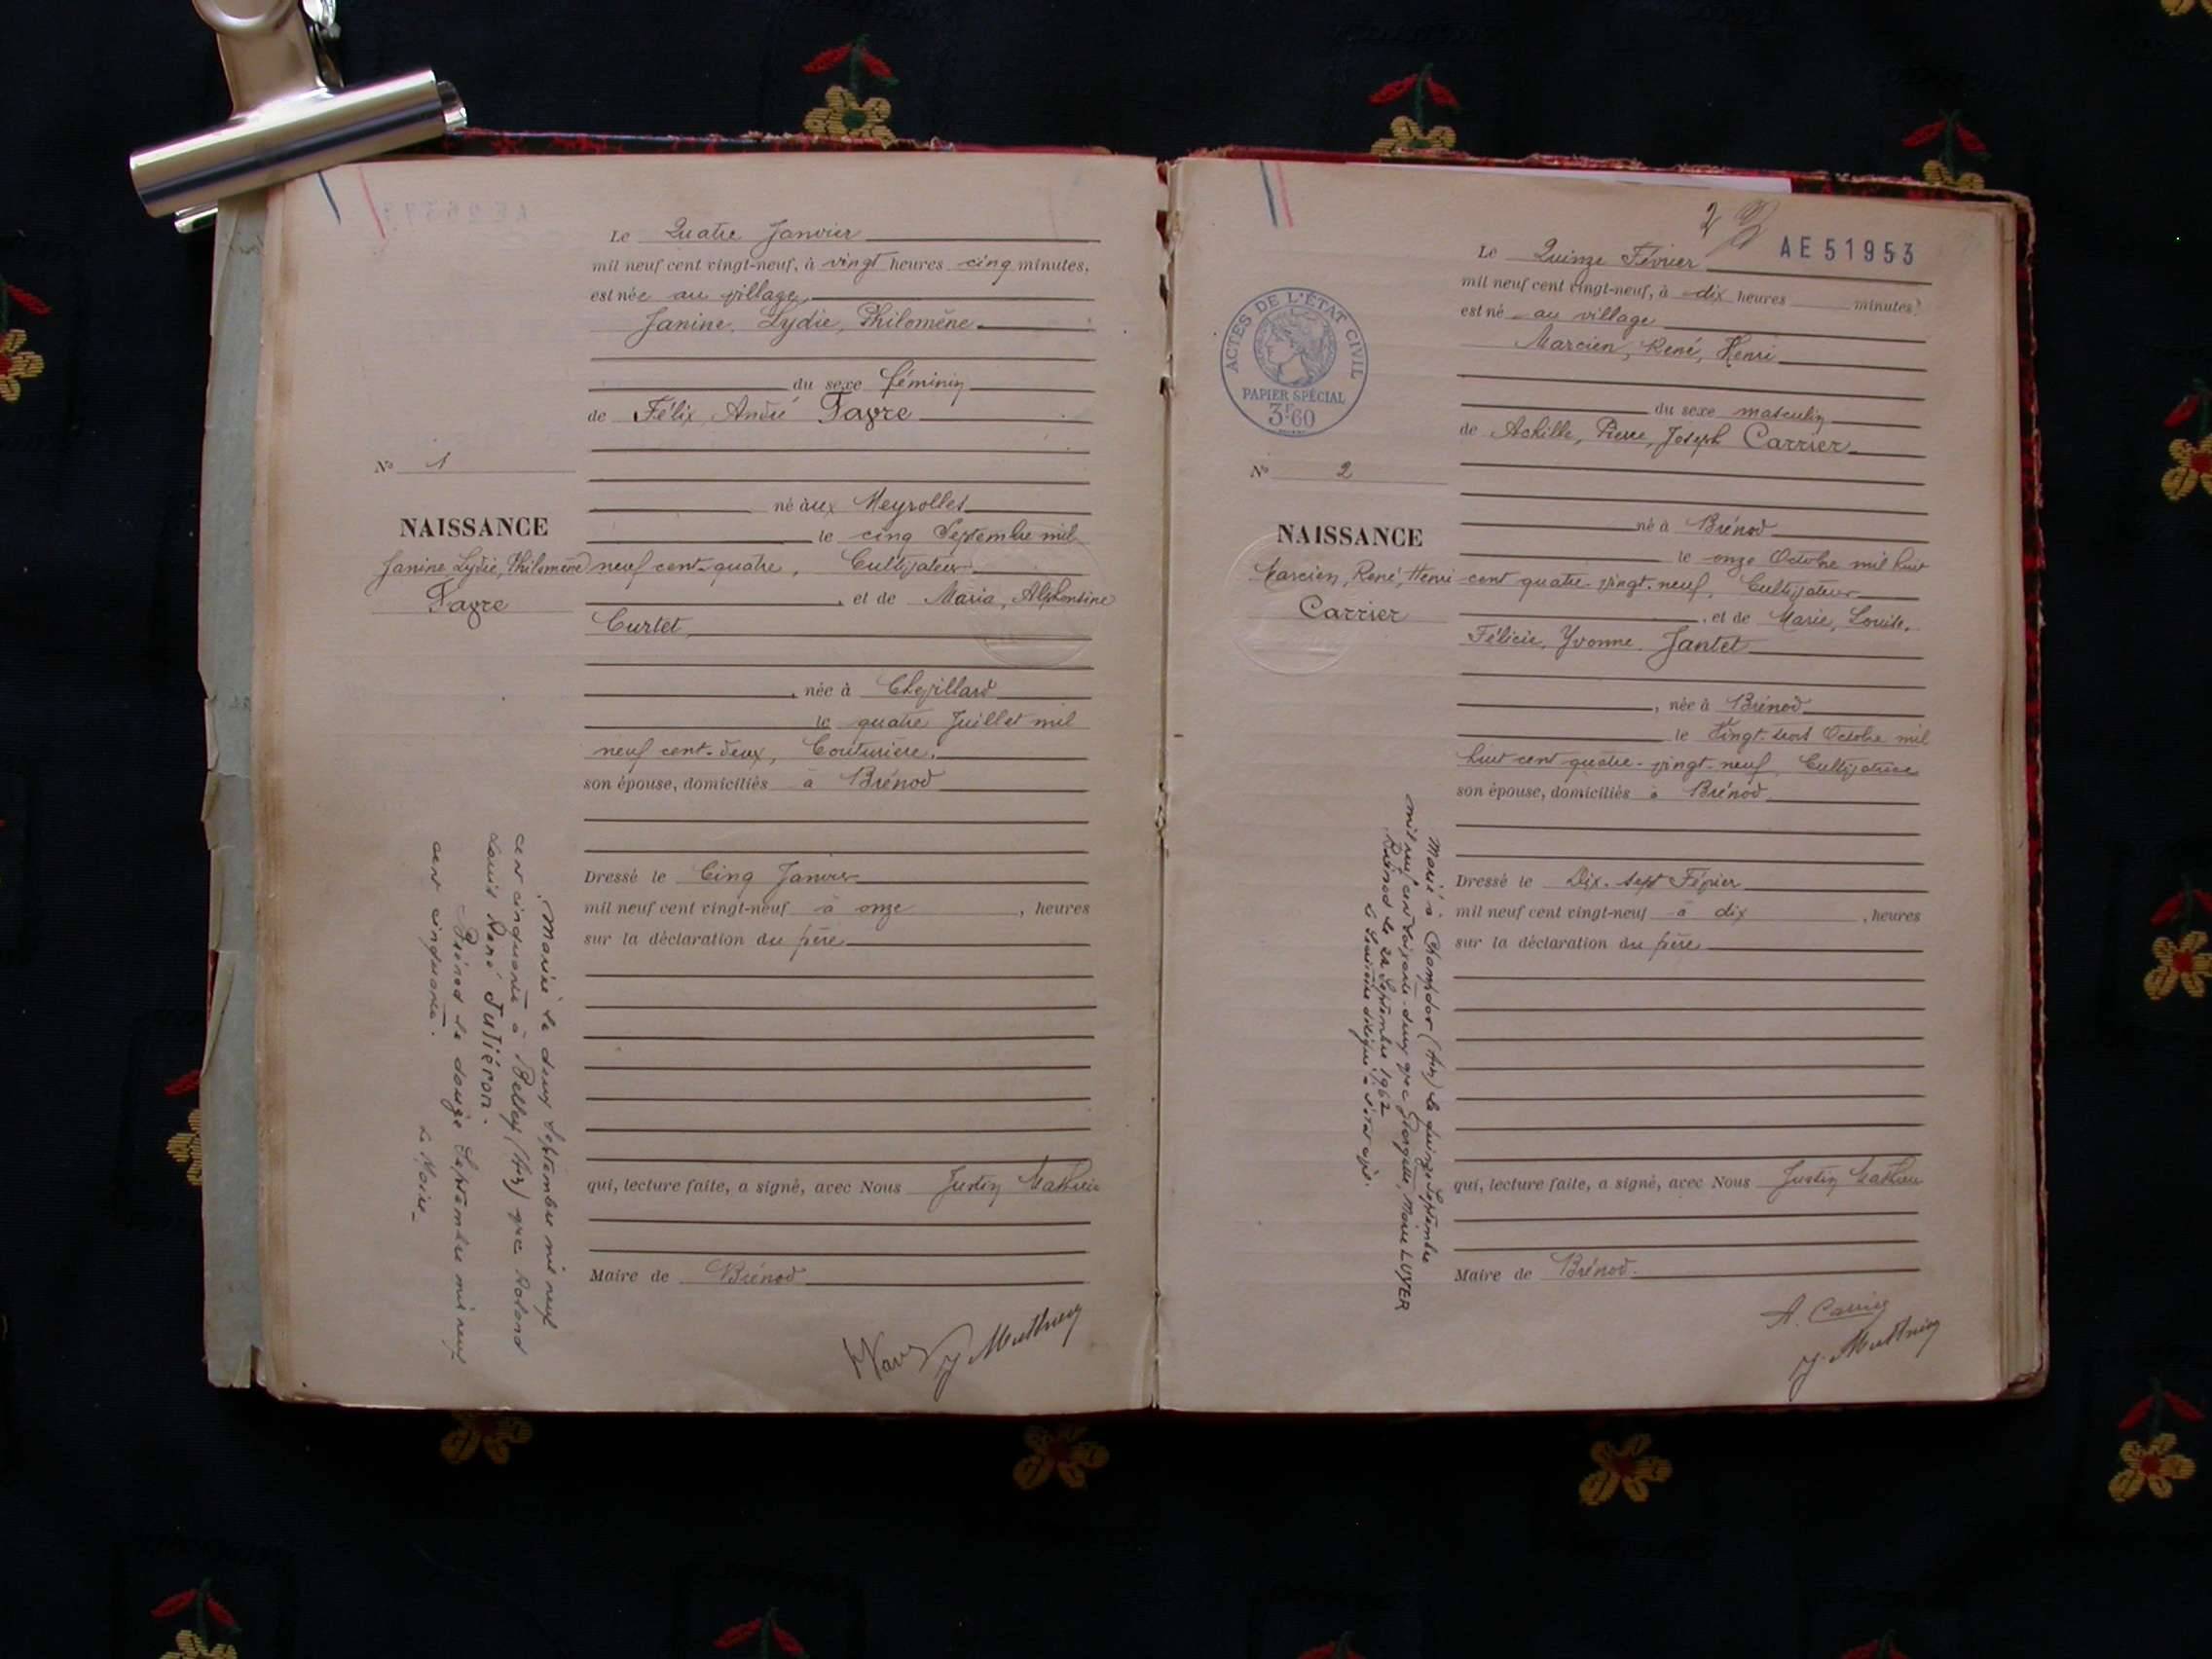 Le Quatre Janvier
mil neuf cent vingt-neuf, à vingt heures cinq minutes,
est née au village,
Janine, Lydie, Philomène
du sexe féminin
de Félix, André Favre
N° 1
né aux Meyrolles
NAISSANCE
le cinq Septembre mil
Janine, Lydie, Philomène
neuf cent-quatre, Cultivateur
Favre
, et de Maria, Alphonsine
Curtet,
, née à Chevillard
le quatre Juillet mil
neuf cent-deux, Couturière,
son épouse, domiciliés à Brénod
Dressé le Cinq Janvier
mil neuf cent vingt-neuf à onze , heures
sur la déclaration du père
qui, lecture faite, a signé, avec Nous Justin Mathieu
Maire de Brénod
J. Mathieu
Mariée le deux Septembre mil neuf
cent cinquante à Belley (Ain) avec Roland
Louis René Tuliéron.
Brénod le douze Septembre mil neuf
cent cinquante.
Le Maire
2
AE 51953
Le Quinze Février
mil neuf cent vingt-neuf, à dix heures minutes,
est né au village
Marcien, René, Henri
ACTES DE L'ÉTAT CIVIL
PAPIER SPÉCIAL
3F60
du sexe masculin
de Achille, Pierre, Joseph Carrier
N° 2
né à Brénod
NAISSANCE
le onze Octobre mil huit
Marcien, René, Henri
cent quatre-vingt-neuf, Cultivateur
Carrier
, et de Marie, Louise,
Félicie, Yvonne Jantet
, née à Brénod
le Vingt-trois Octobre mil
huit cent quatre-vingt-neuf, Cultivatrice
son épouse, domiciliés à Brénod
Dressé le Dix-sept Février
mil neuf cent vingt-neuf à dix , heures
sur la déclaration du père
qui, lecture faite, a signé, avec Nous Justin Mathieu
Maire de Brénod
A. Carrier
J. Mathieu
Marié à Champdor (Ain) le quinze Septembre
mil neuf cent soixante-deux avec Georgette, Marie LUYER
Brénod le 22 Septembre 1962
Le Secrétaire délégué à l'état civil.